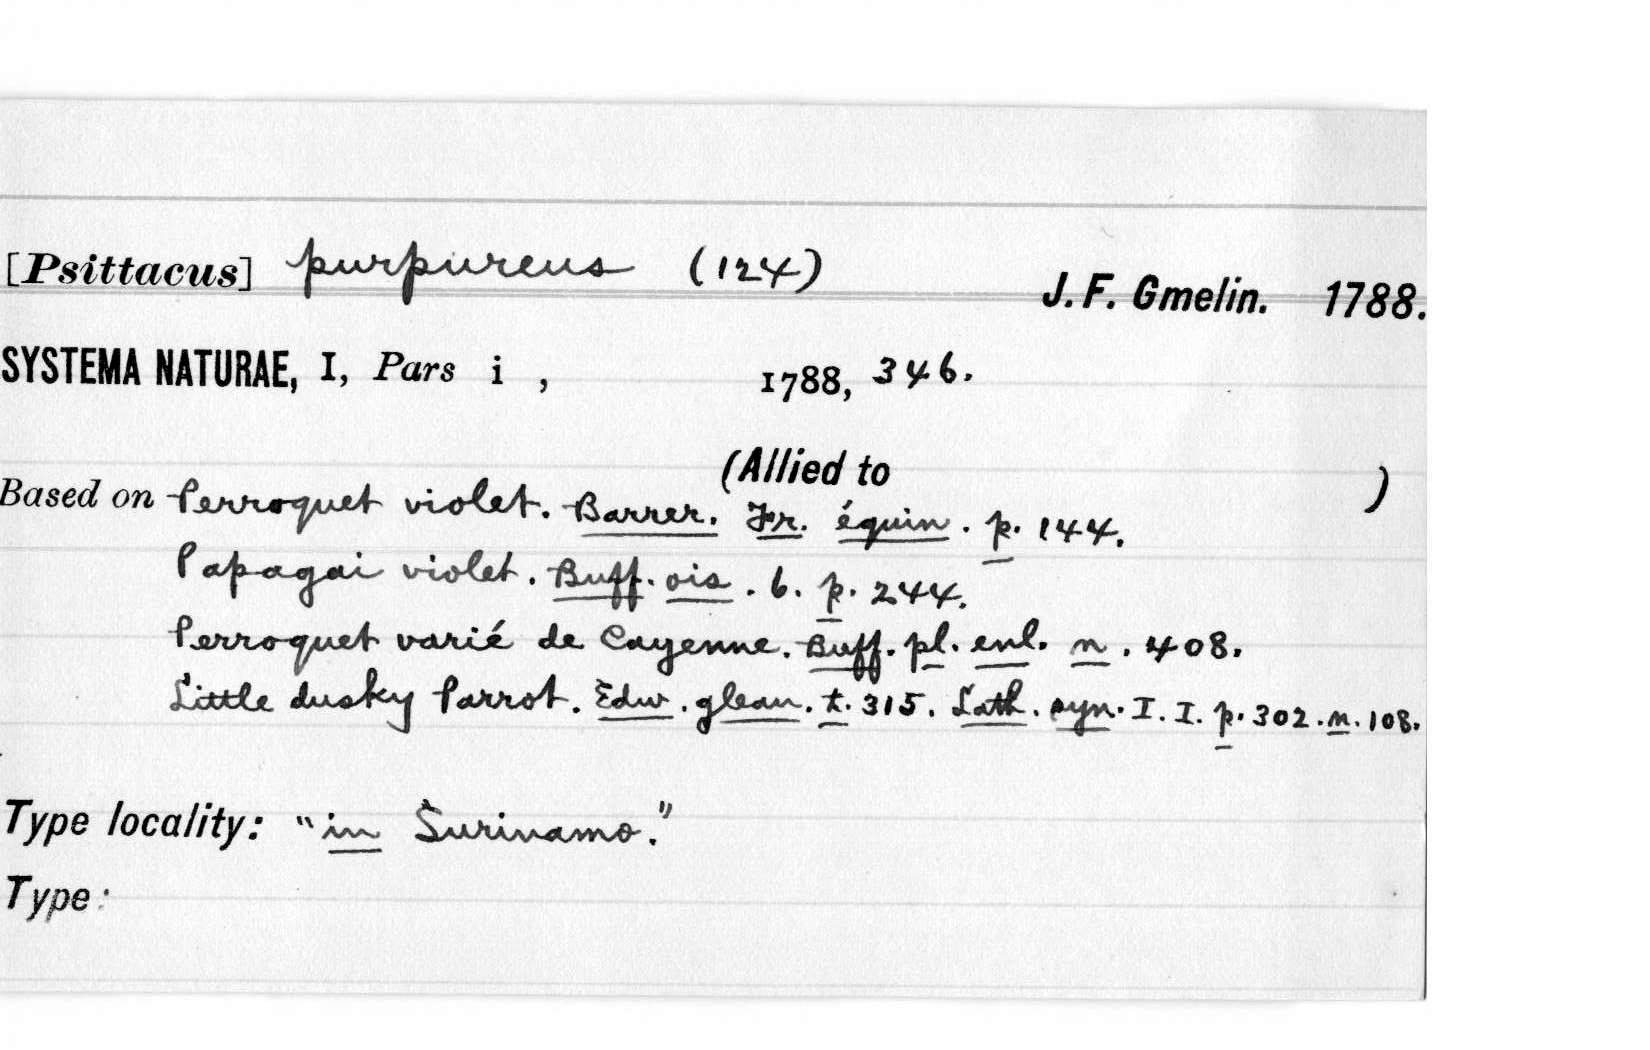 [Psittacus] purpureus (124)
J. F. Gmelin. 1788.
SYSTEMA NATURAE, I, Pars i , 1788, 346.
(Allied to )
Based on Perroquet violet. Barrer. Fr. équin. p. 144.
Papagai violet. Buff. ois. 6. p. 244.
Perroquet varié de Cayenne. Buff. pl. enl. n. 408.
Little dusky Parrot. Edw. glean. t. 315. Lath. syn. I. I. p. 302. n. 108.
Type locality: "in Surinamo."
Type: